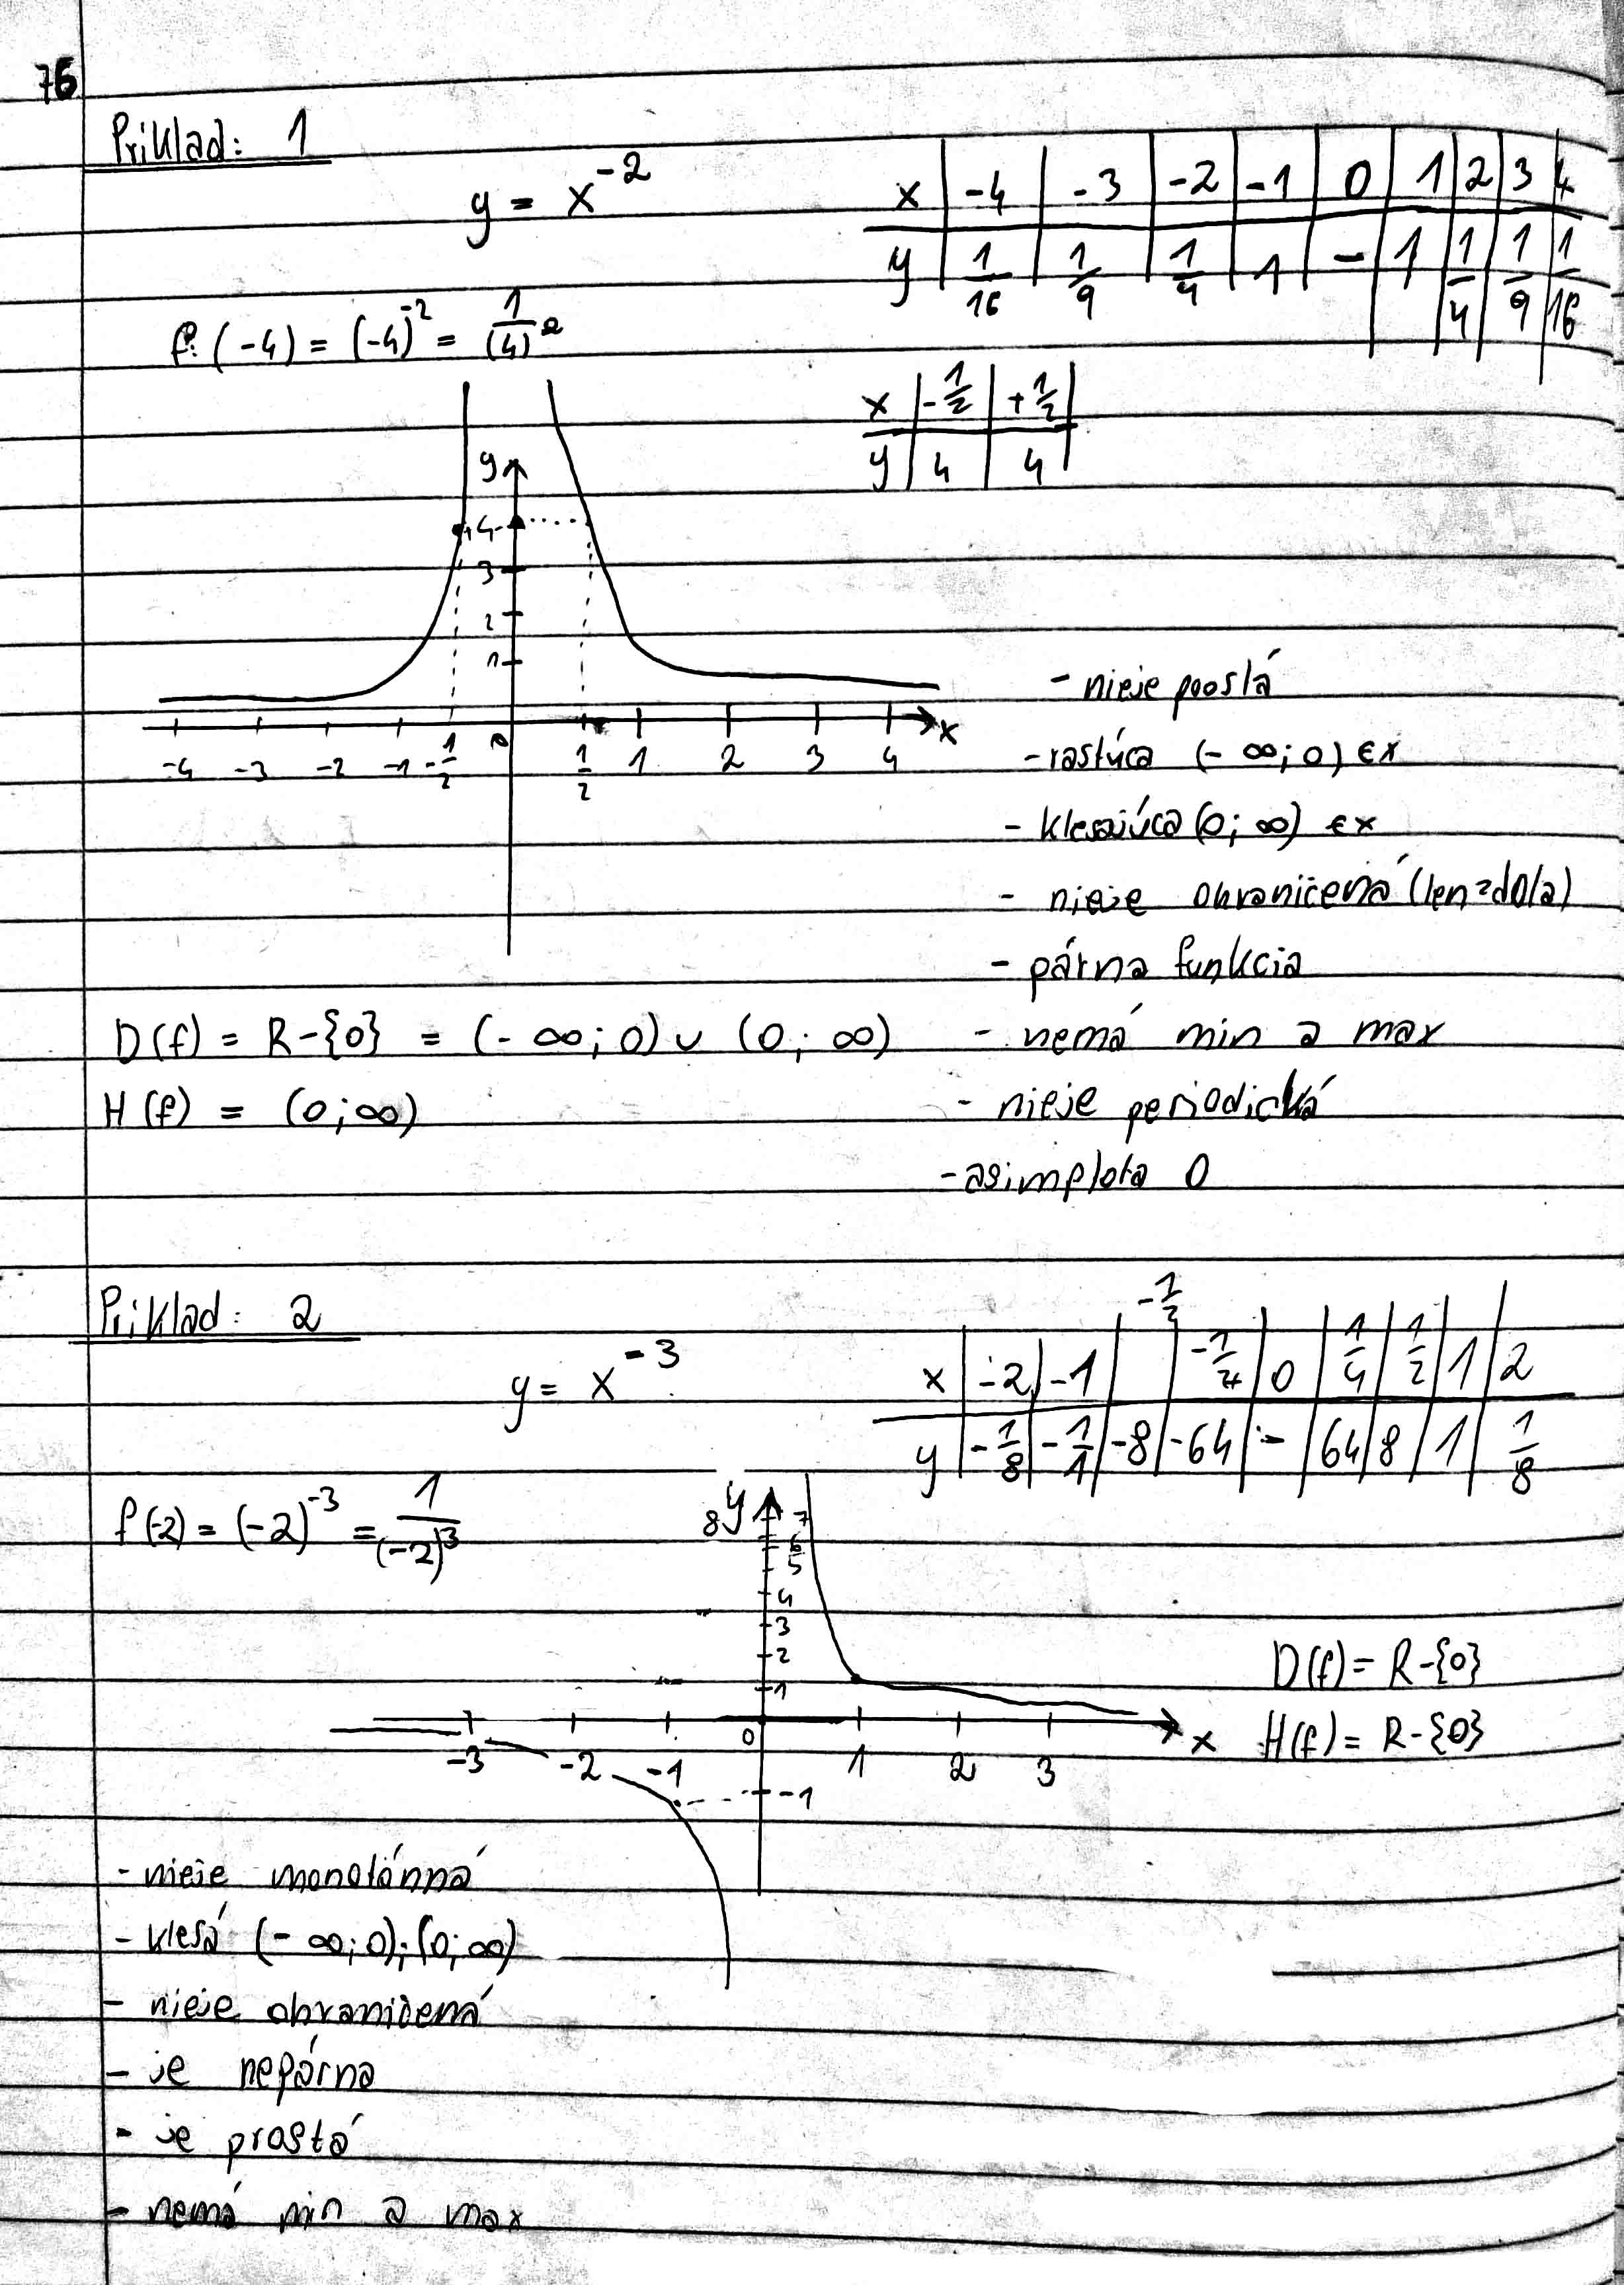 76
Príklad: 1
y = x^-2
x | -4 | -3 | -2 | -1 | 0 | 1 | 2 | 3 | 4
y | 1/16 | 1/9 | 1/4 | 1 | - | 1 | 1/4 | 1/9 | 1/16
f: (-4) = (-4)^-2 = 1/(4)^2
x | -1/2 | +1/2
y | 4 | 4
y
4
3
2
1
-4 -3 -2 -1 -1/2 0 1/2 1 2 3 4 x
- nieje prostá
- rastúca (-∞; 0) ∈x
- klesajúca (0; ∞) ∈x
- nieje ohraničená (len zdola)
- párna funkcia
D(f) = R-{0} = (-∞; 0) ∪ (0; ∞)
- nemá min a max
H(f) = (0; ∞)
- nieje periodická
- asimptota 0
Príklad: 2
y = x^-3
x | -2 | -1 | -1/2 | -1/4 | 0 | 1/4 | 1/2 | 1 | 2
y | -1/8 | -1/1 | -8 | -64 | - | 64 | 8 | 1 | 1/8
f(-2) = (-2)^-3 = 1/(-2)^3
8 y
7
6
5
4
3
2
1
-3 -2 -1 0 1 2 3 x
-1
D(f) = R-{0}
H(f) = R-{0}
- nieje monotónna
- klesá (-∞; 0); (0; ∞)
- nieje ohraničená
- je nepárna
- je prostá
- nemá min a max